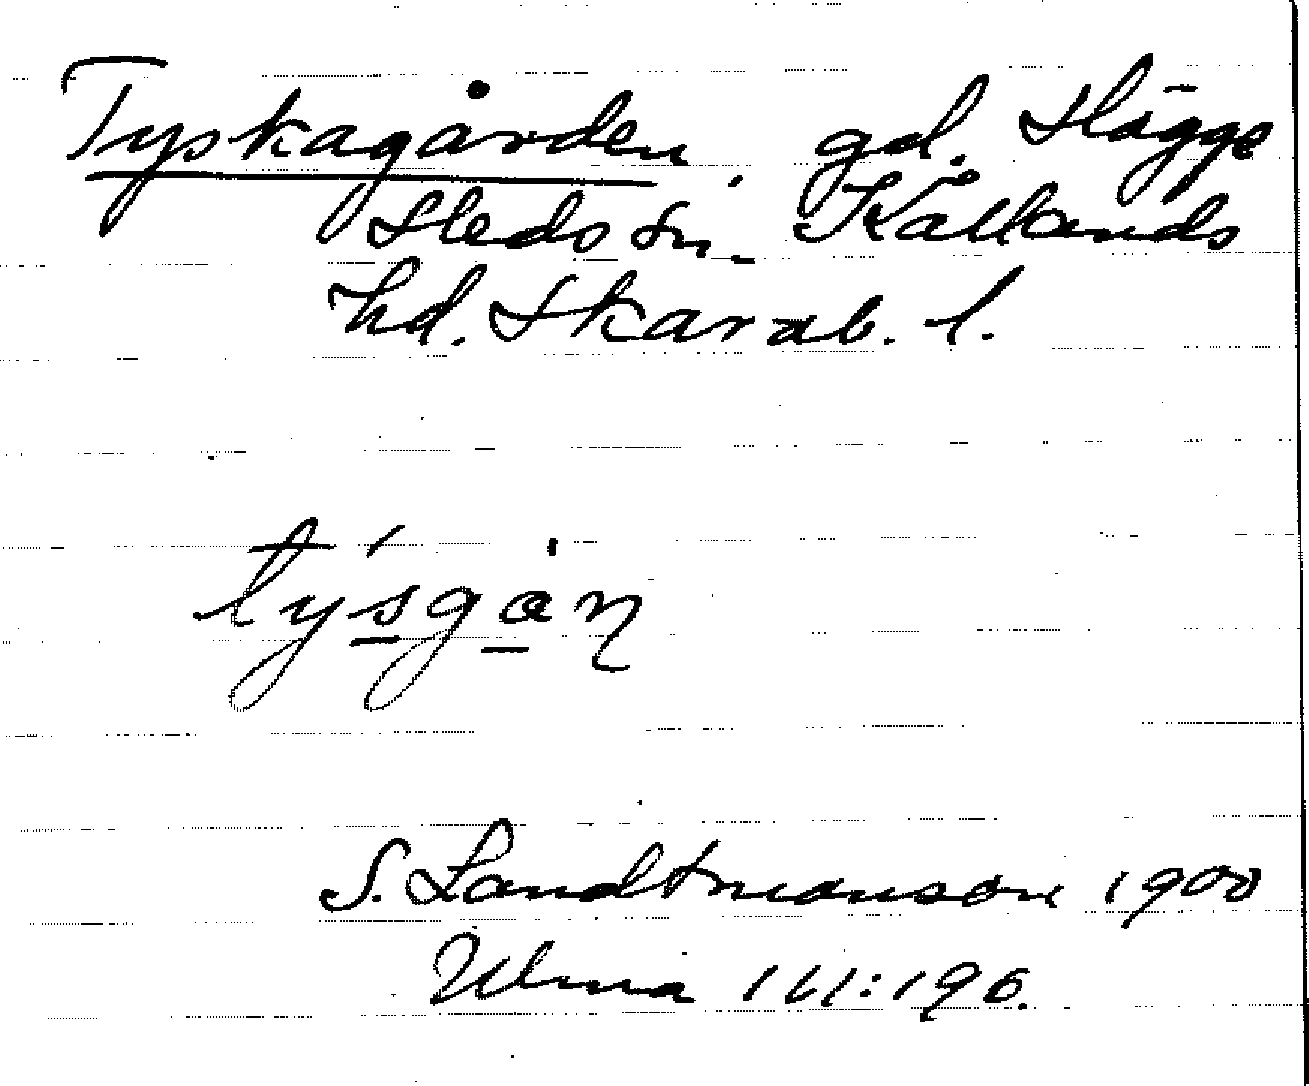 Tyskagården, gd. Högge
Sleds sn. Kållands
hd. Skarab. l.
týsgȧn
S. Landtmanson 1900
Ulma 161:196.